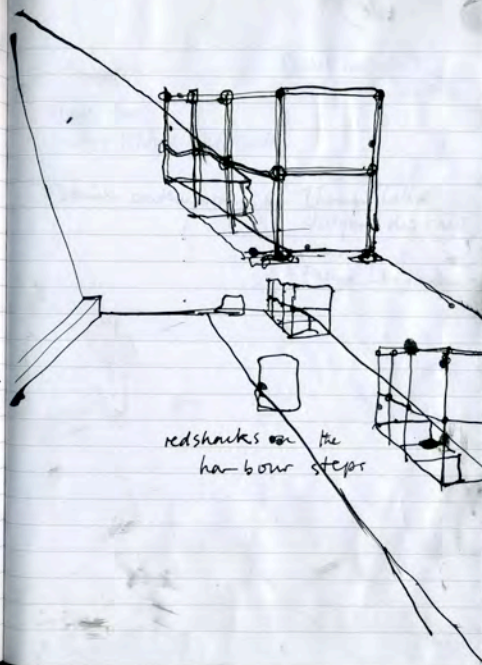 redshanks on the
harbour steps